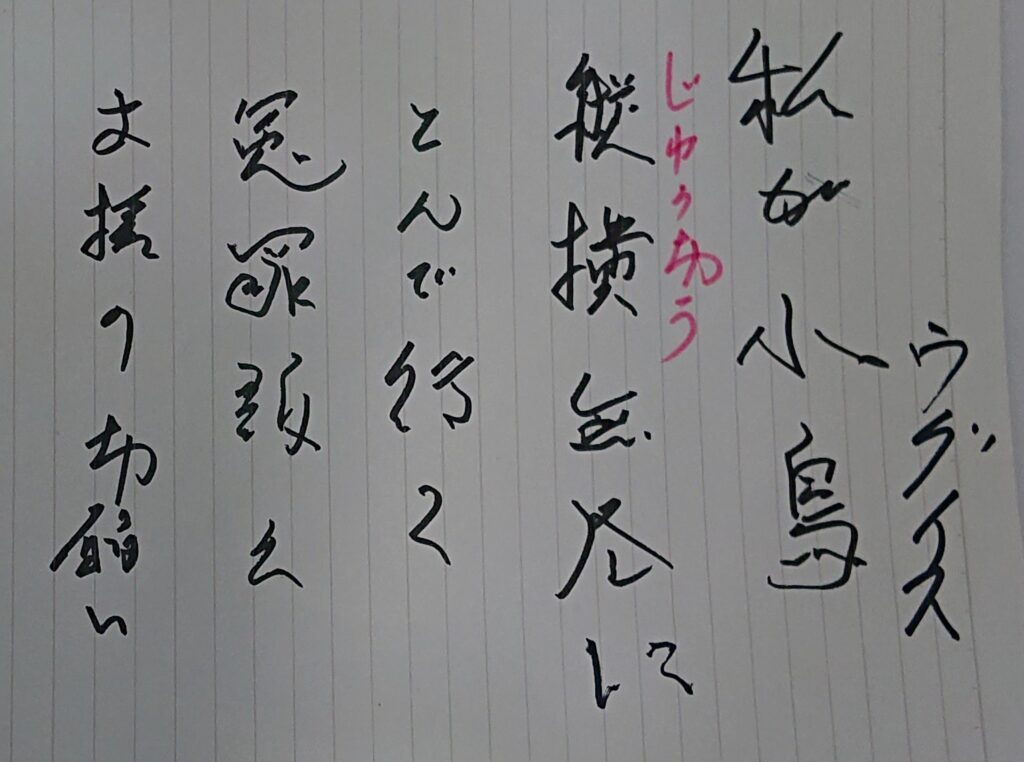 ウグイス
私が小鳥
じゅうおう
縦横無尽に
とんで行く
冤罪報
の切